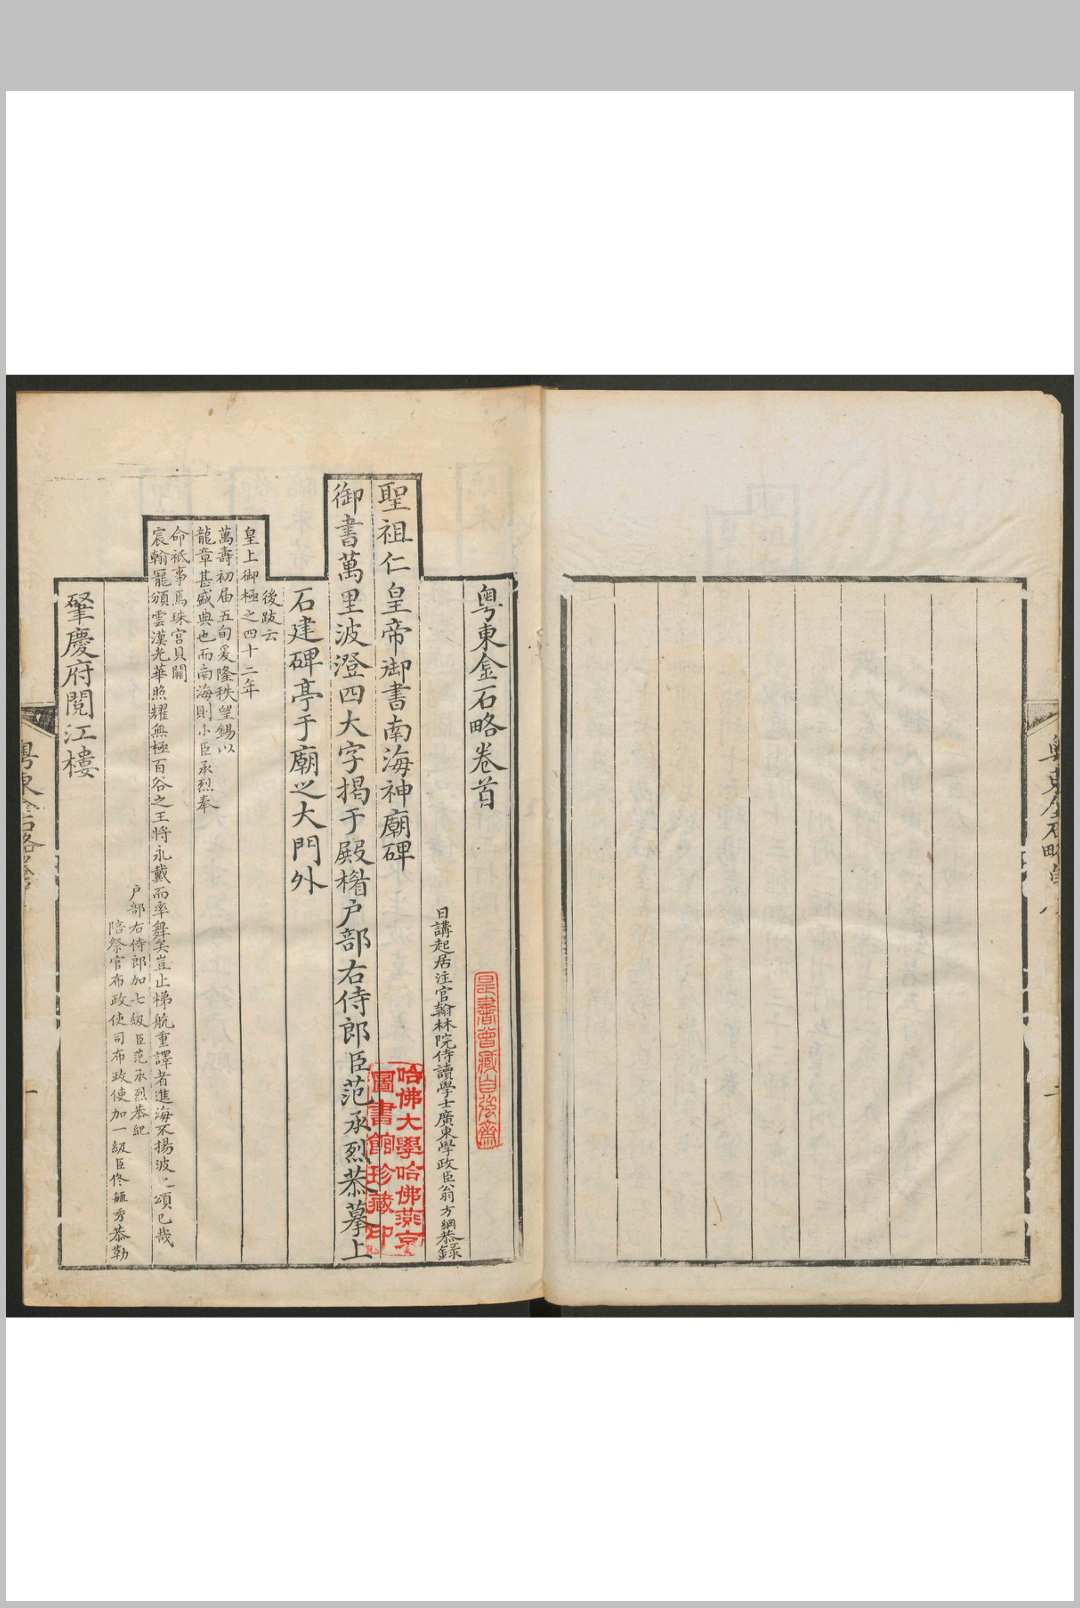 粵東金石略卷首
日講起居注官翰林院侍讀學士廣東學政臣翁方綱恭錄
聖祖仁皇帝御書南海神廟碑
御書萬里波澄四大字揭于殿楣户部右侍郎臣范承烈恭摹上
石建碑亭于廟之大門外
後跋云
皇上御極之四十二年
萬壽初届五旬爰隆秩望錫以
龍章甚盛典也而南海則小臣承烈奉
命祗事焉珠宫貝闕
宸翰寵頒雲漢光華照耀無極百谷之王將永戴而率舞矣豈止梯航重譯者進海不揚波之頌已哉
户部右侍郎加七級臣范承烈恭紀
陪祭官布政使司布政使加一級臣佟毓秀恭勒
肇慶府閱江樓
粵東金石略卷
一
粵東金石略
是書曾藏自強齋
哈佛大學哈佛燕京
圖書館珍藏印